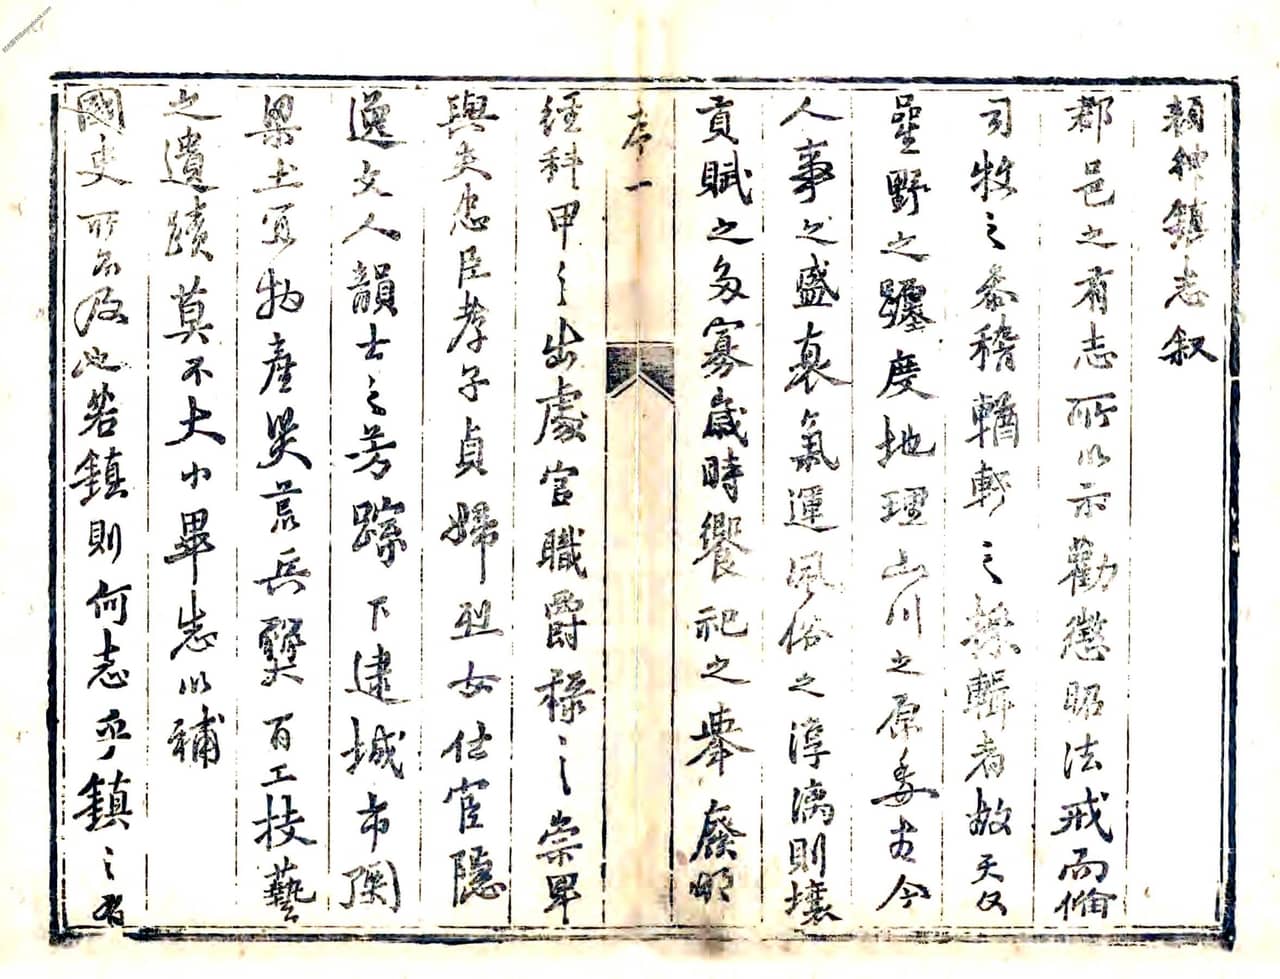 顏神鎮志叙
郡邑之有志所以示勸懲昭法戒而備
司牧之叅稽輶軒之採輯者故天文
星野之躔度地理山川之原委古今
人事之盛衰氣運風俗之淳漓則壤
貢賦之多寡歲時饗祀之舉廢明
序一
經科甲之出處官職爵祿之崇卑
與夫忠臣孝子貞婦烈女仕宦隱
逸文人韻士之芳踪下逮城市関
梁土宜物產災荒兵燹百工技藝
之遺蹟莫不大小畢志以補
國史所不及也若鎮則何志乎鎮之有